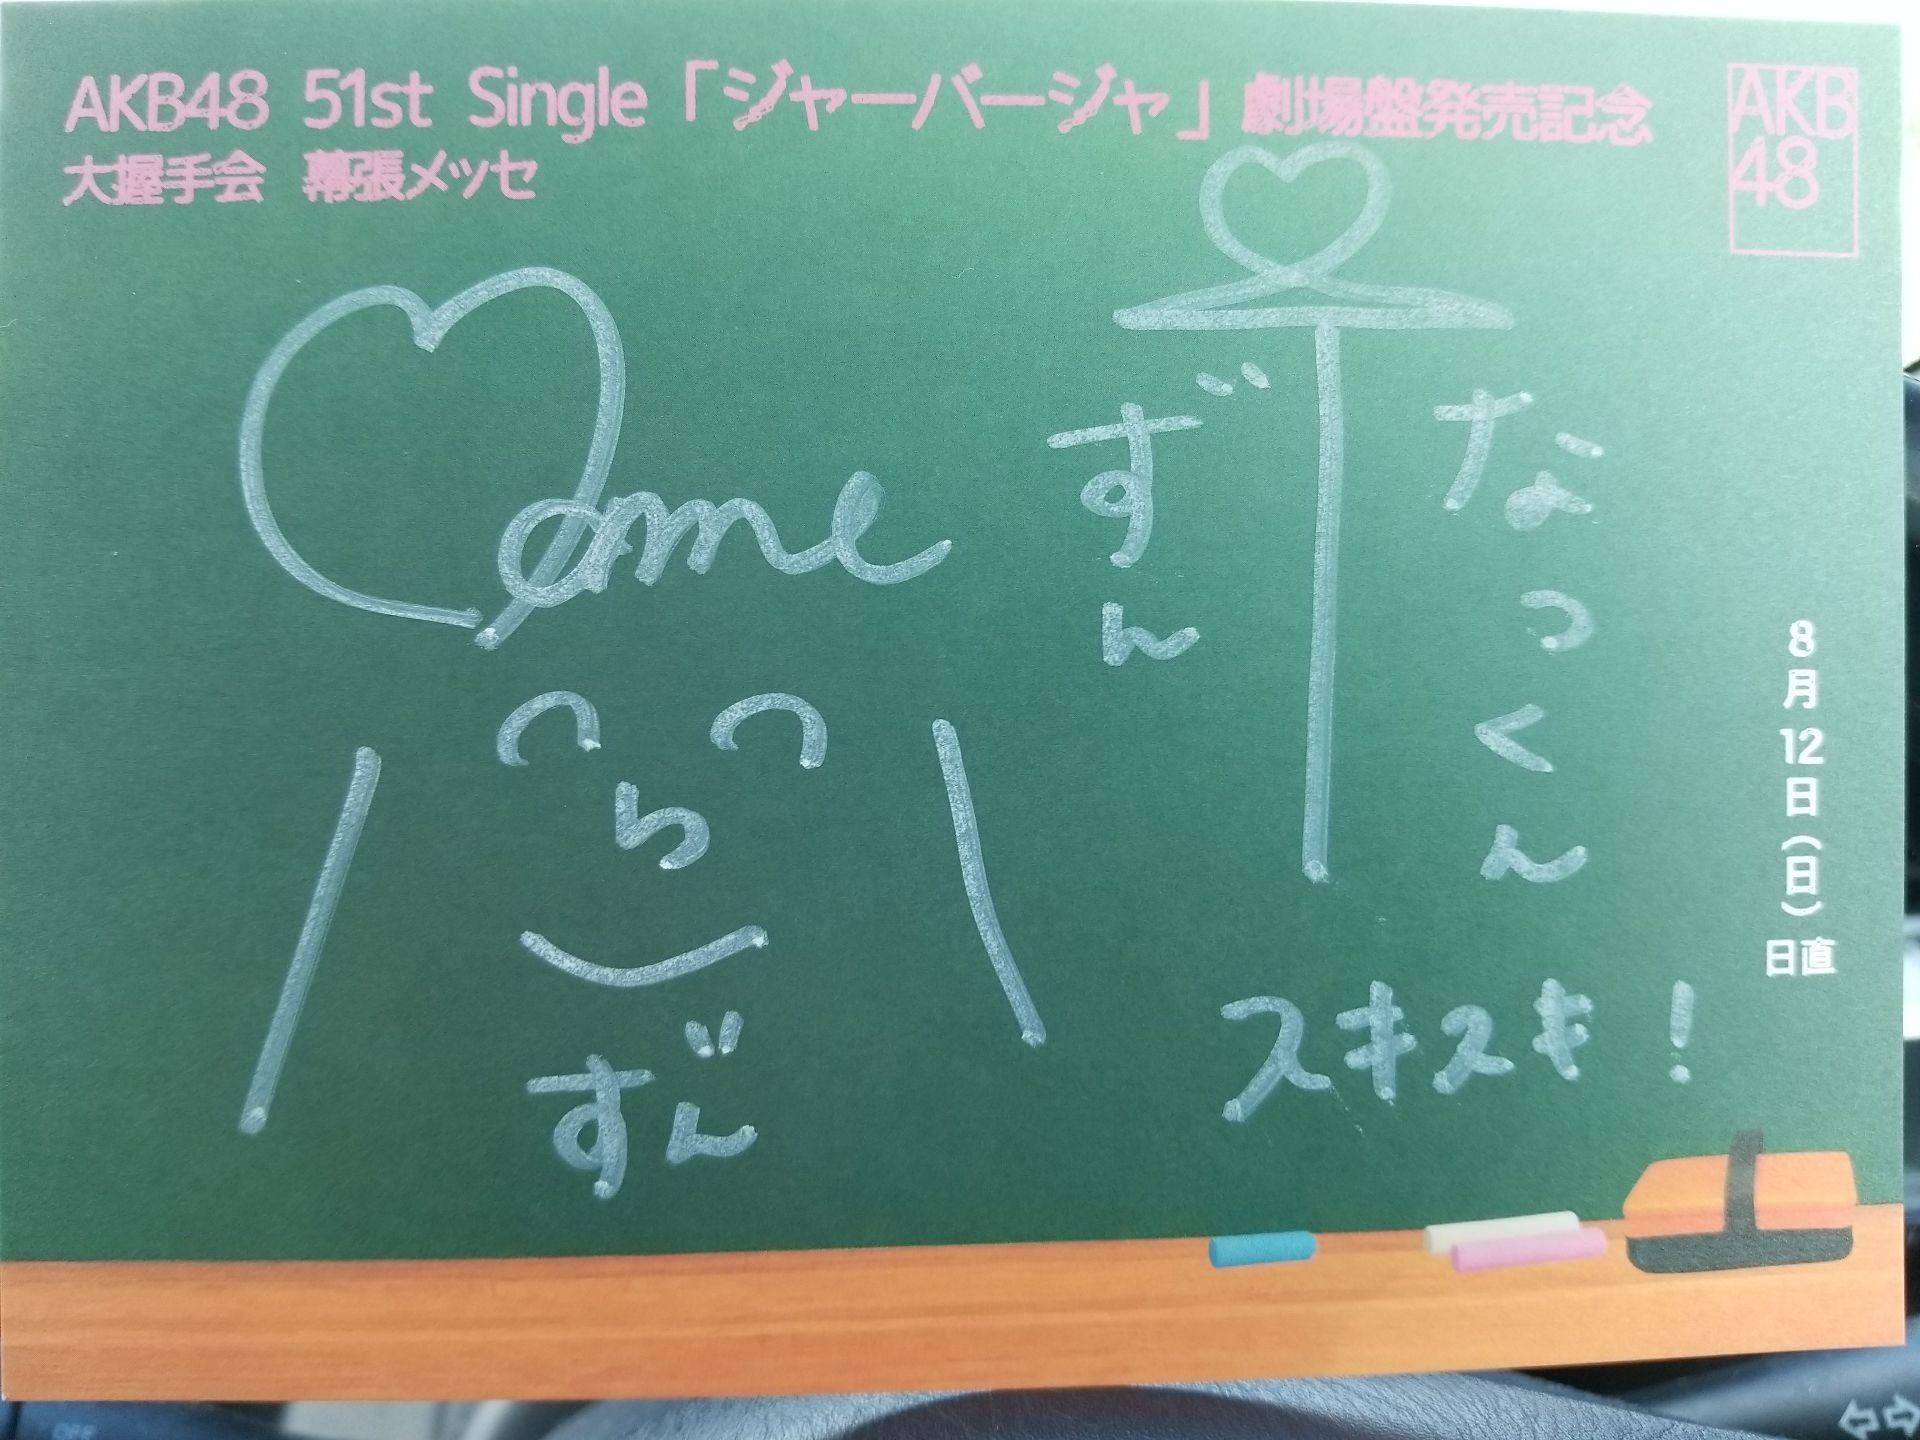 AKB48 51st Single「ジャーバージャ」劇場盤発売記念
大握手会 幕張メッセ
AKB
48
なつくん
ずん
ame
ら
ずん
スキスキ!
8月12日(日)
日直